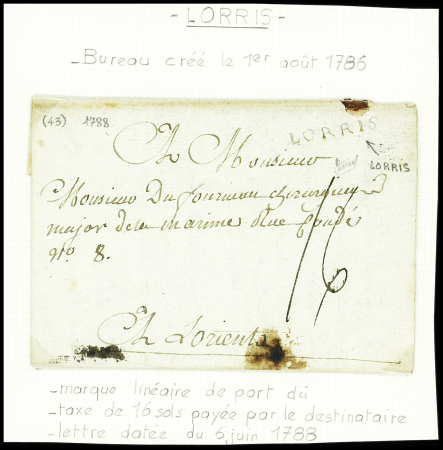 - LORRIS -
- Bureau créé le 1er août 1786
(43) 1788
LORRIS
LORRIS
A Monsieur
Monsieur Du fourneau chirurgien
major de la marine Rue Condé
No. 8.
16
A Lorient
- marque linéaire de port dû
- taxe de 16 sols payée par le destinataire
- lettre datée du 6 juin 1788